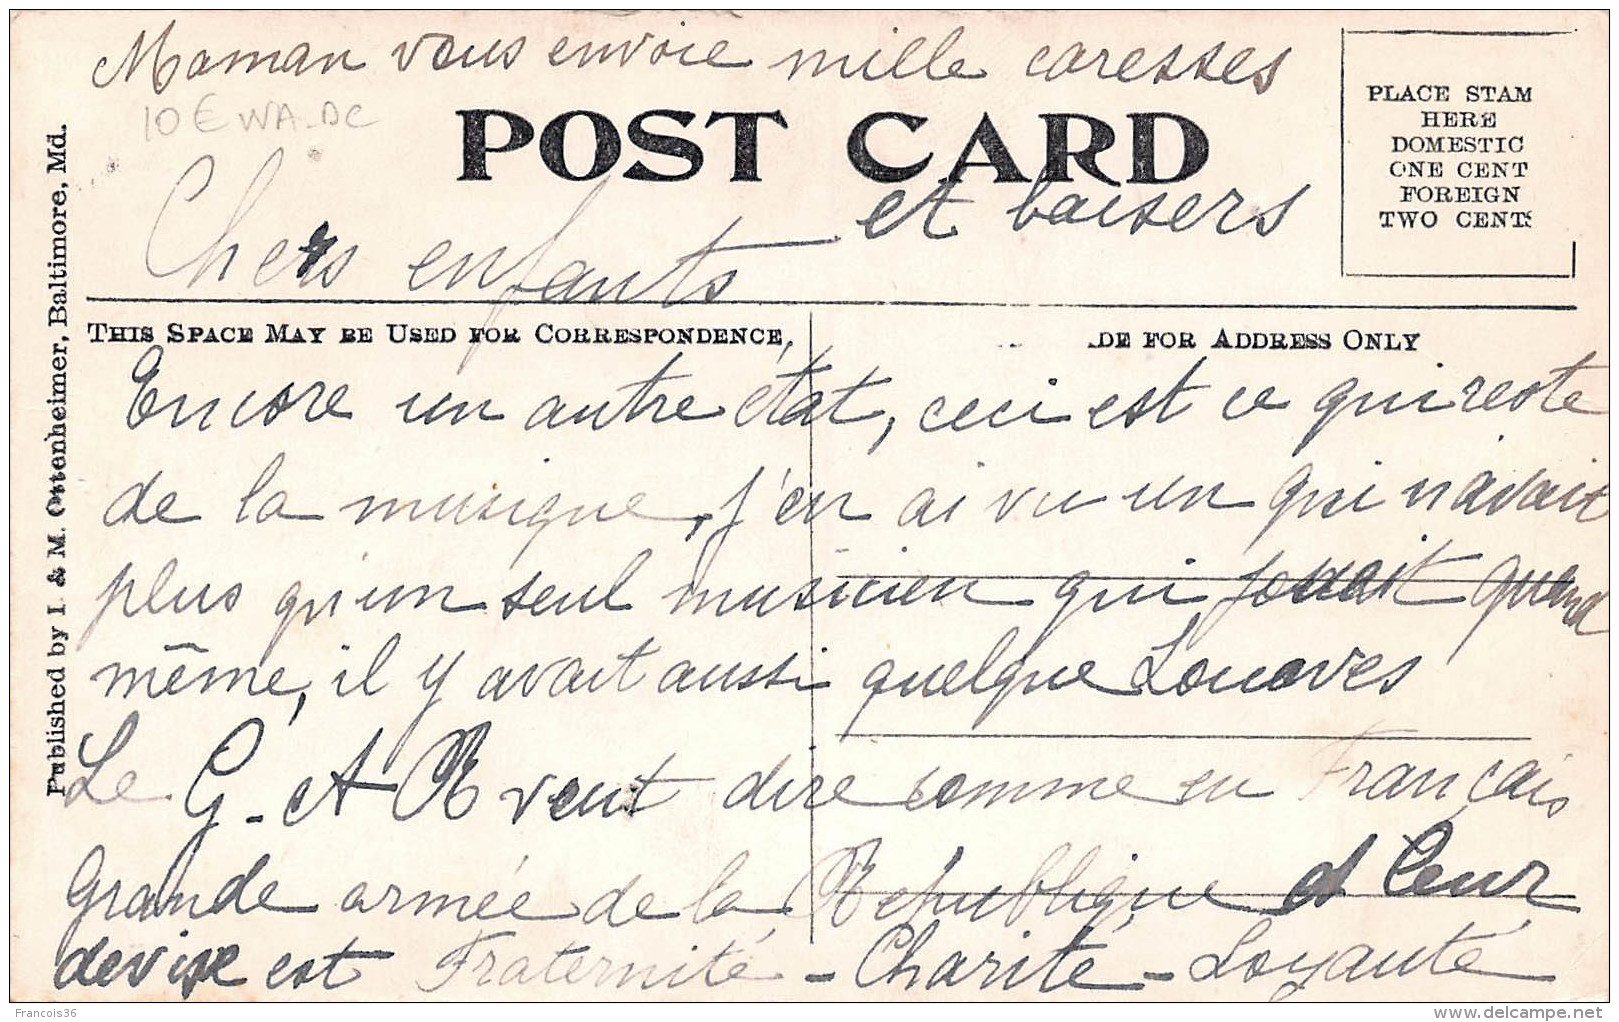 Maman vous envoie mille caresses
10€ WA-DC
POST CARD
et baisers
Chers enfants
PLACE STAM
HERE
DOMESTIC
ONE CENT
FOREIGN
TWO CENTS
THIS SPACE MAY BE USED FOR CORRESPONDENCE,
DE FOR ADDRESS ONLY
Published by I. & M. Ottenheimer, Baltimore, Md.
Encore un autre état, ceci est ce qui reste
de la musique, j'en ai vu un qui n'avait
plus qu'un seul musicien qui jouait quand
même, il y avait aussi quelque Zouaves
Le G-A-R veut dire comme en Français
Grande armée de la République et leur
devise est Fraternité - Charité - Loyauté
Francois36
delcampe.net